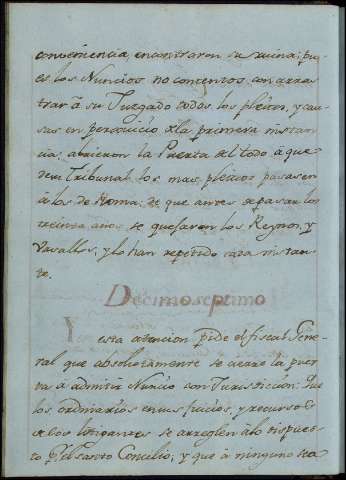 conveniencia, encontraron su ruina; pu-
es los Nuncios no contentos con arras-
trar â su Juzgado todos los pleitos, y cau-
sas en perjuicio dela primera instan-
cia; abrieron la Puerta del todo â que
deu Tribunal los mas pleitos pasasen
â los de Roma; de que antes depasar los
treinta años se quejaron los Reynos, y
Vasallos, y lo han repetido cada instan-
te.
Decimoseptimo
Y en esta atencion pide el fiscal Gene-
ral que absolutamente se cierre la puer-
ta â admitir Nuncio con Jurisdicion: Que
los ordinarios en sus juicios, y recursos
de los litigantes se arreglen âlo dispues-
to pr. el Santo Concilio, y que â ninguno sea